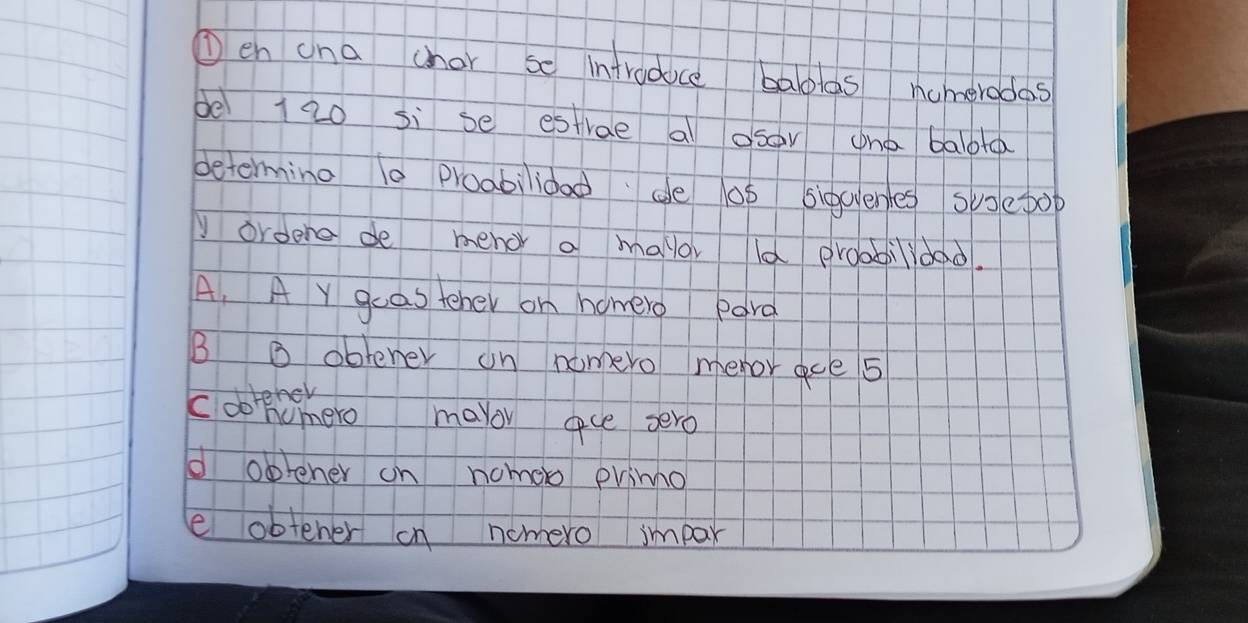 ① en una unar se introduce balotas numeradas
del 120 si se estrae al asar una balota
determina la proabilidad de los siguientes susesos
y ordena de menor a mayor la proabilidad.
A. A y guas tener un numero para
B B obtener un numero menor que 5
C obtener numero mayor que sero
d obtener un numero primo
e obtener un numero impar